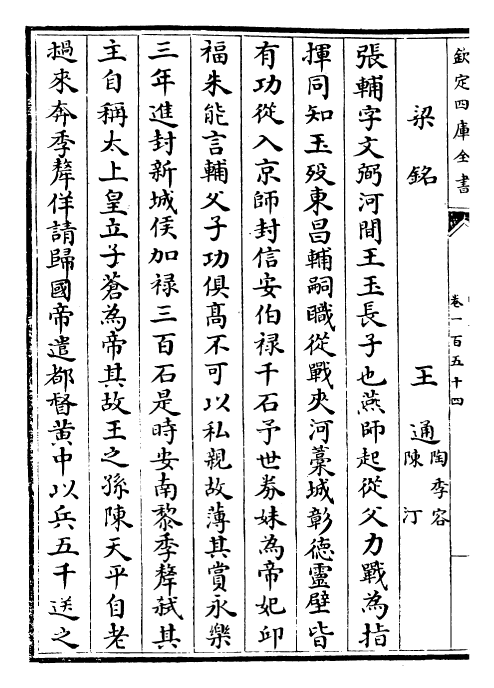 欽定四庫全書
卷一百五十四
梁銘
王通
陶季容
陳汀
張輔字文弼河間王玉長子也燕師起從父力戰為指
揮同知玉歿東昌輔嗣職從戰夾河藁城彰德靈壁皆
有功從入京師封信安伯禄千石予世券妹為帝妃邱
福朱能言輔父子功俱髙不可以私親故薄其賞永樂
三年進封新城侯加禄三百石是時安南黎季犛弑其
主自稱太上皇立子蒼為帝其故王之孫陳天平自老
撾來奔季犛佯請歸國帝遣都督黄中以兵五千送之